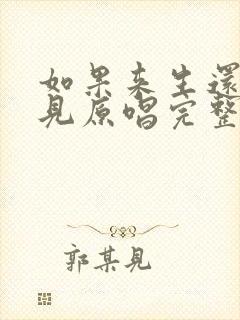 如果来生還
見原唱完整
郭某見